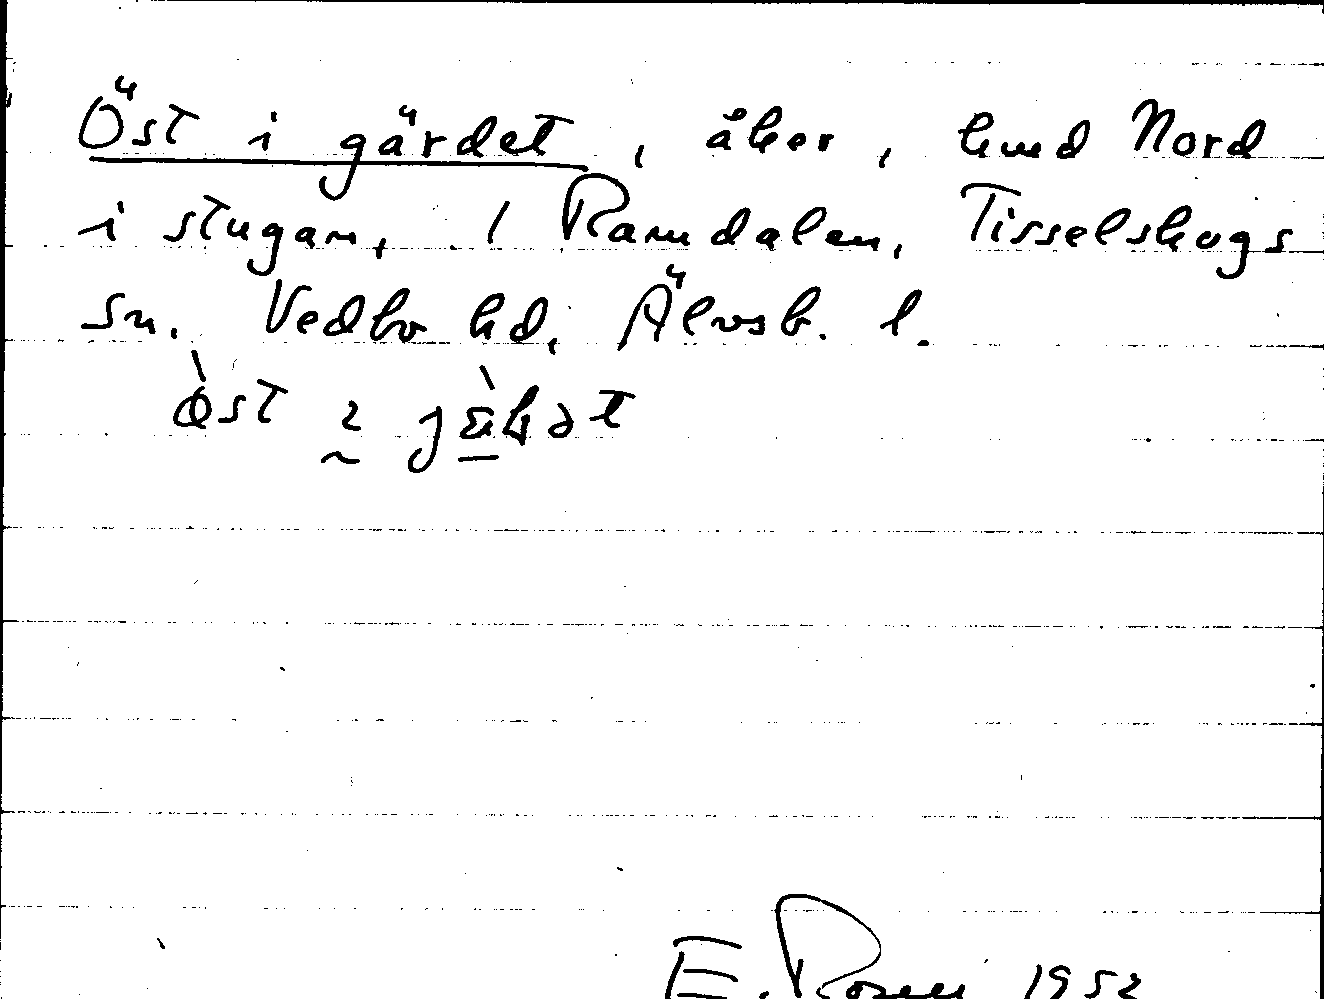 Öst i gärdet, åker, hmd Nord
i stugan, 1 Ramdalen, Tisselskogs
sn. Vedbo hd, Älvsb. l.
E. Rosén 1952